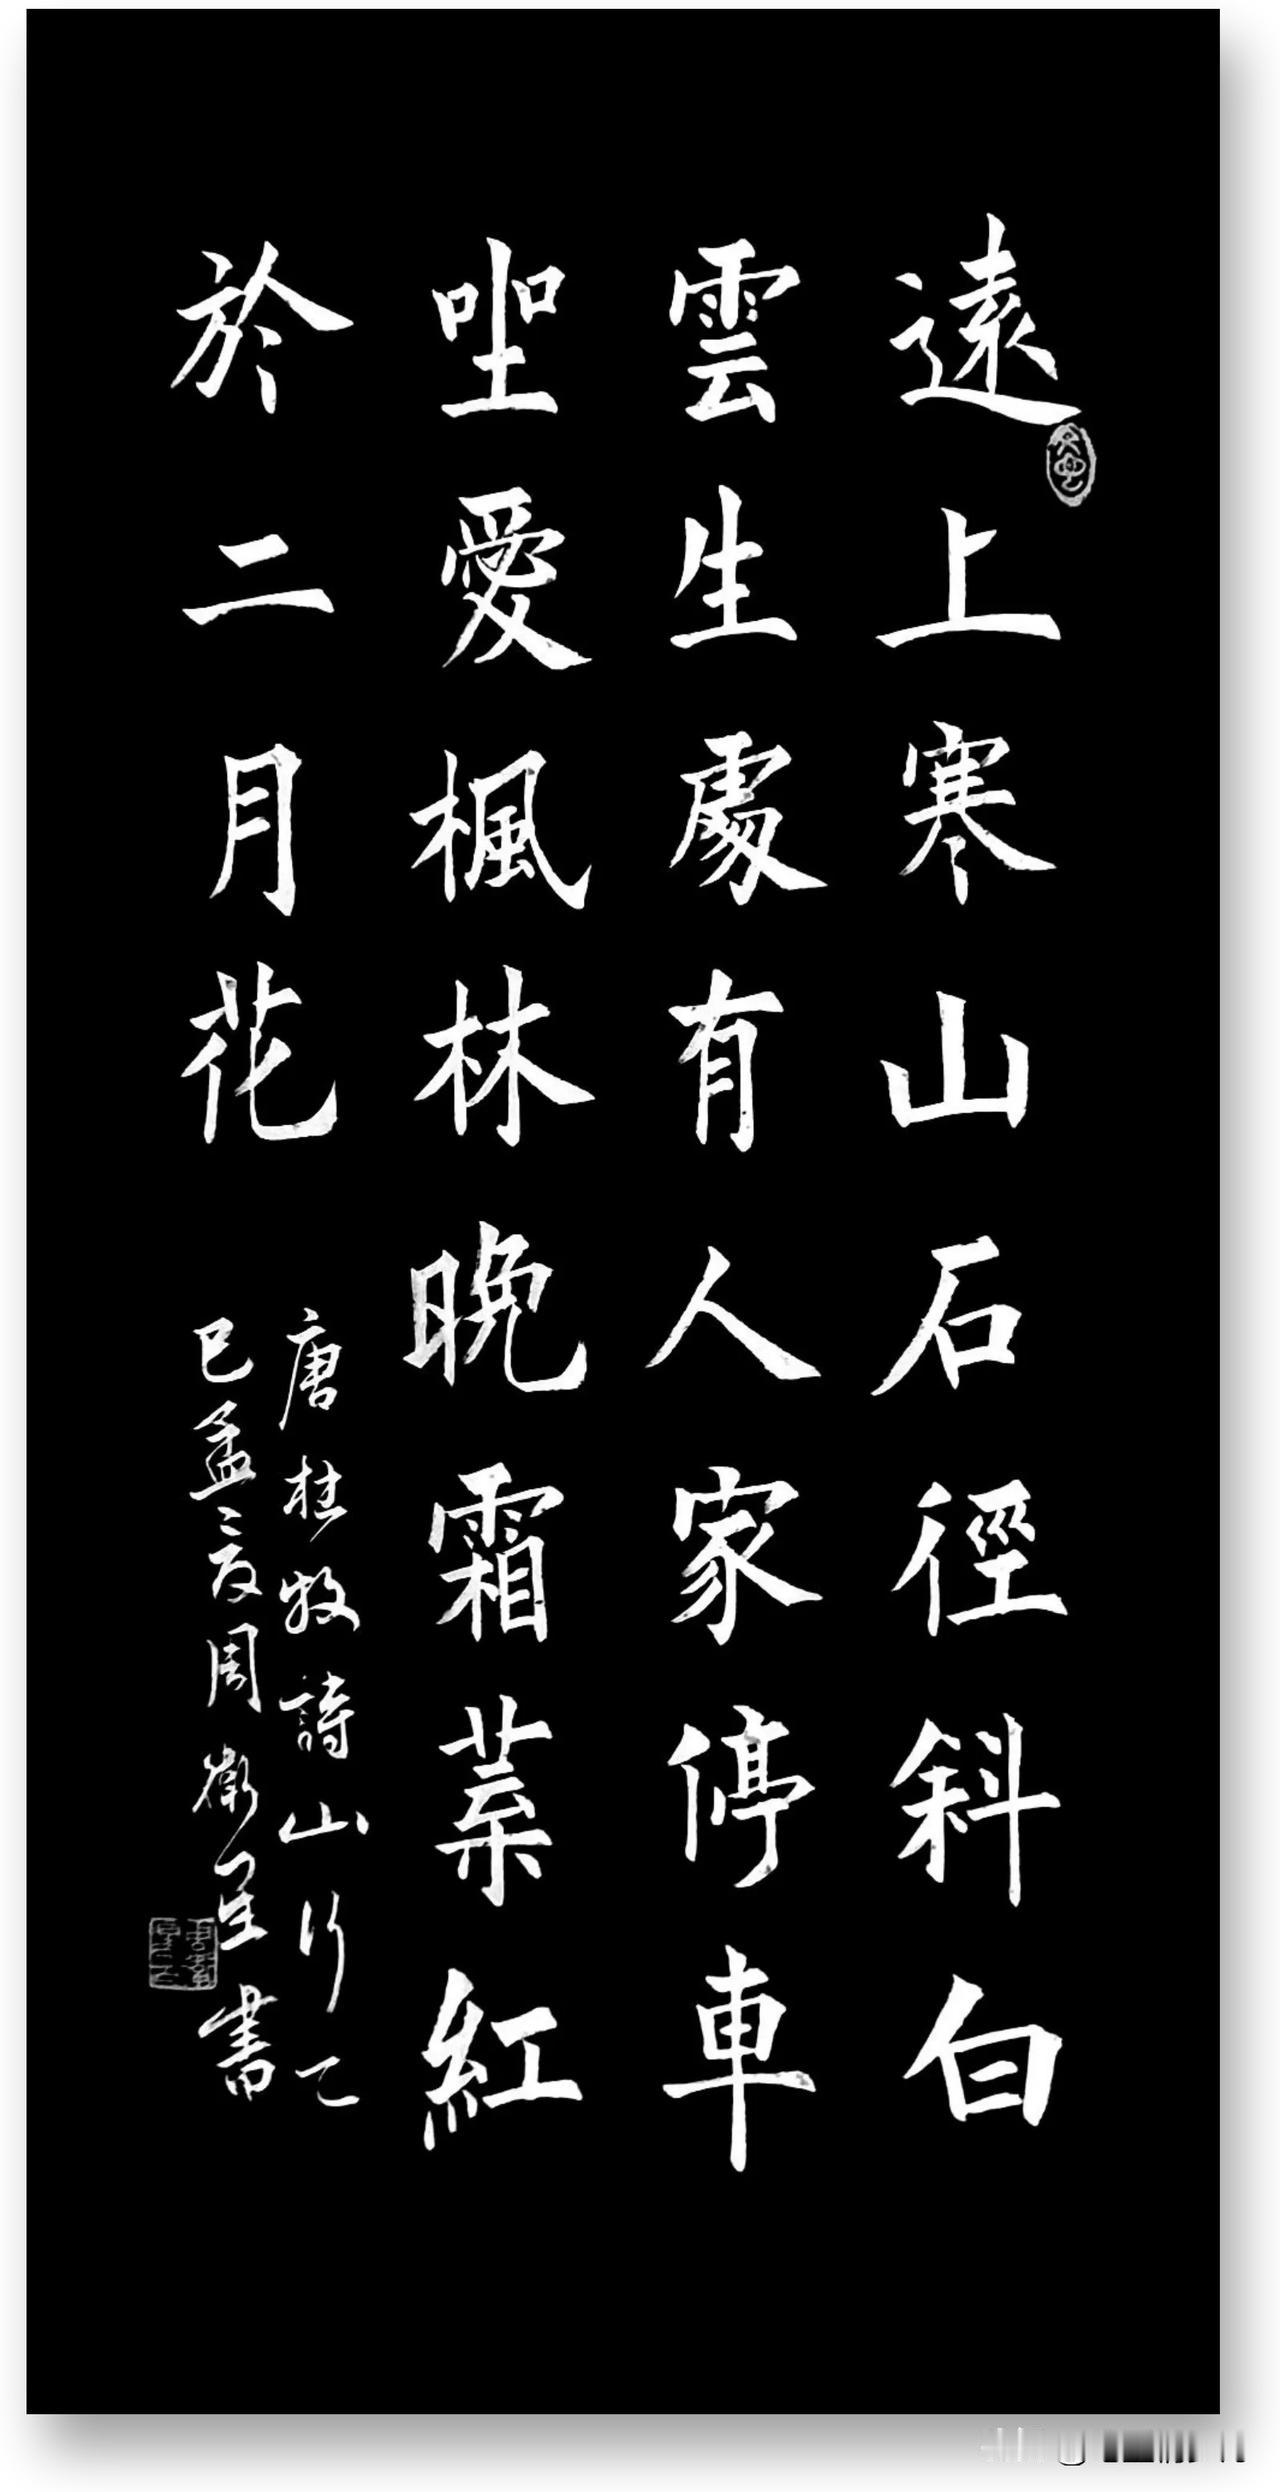 遠上寒山石徑斜白
雲生處有人家停車
坐愛楓林晚霜葉紅
於二月花
唐杜牧詩山行乙
巳孟夏周衛星書